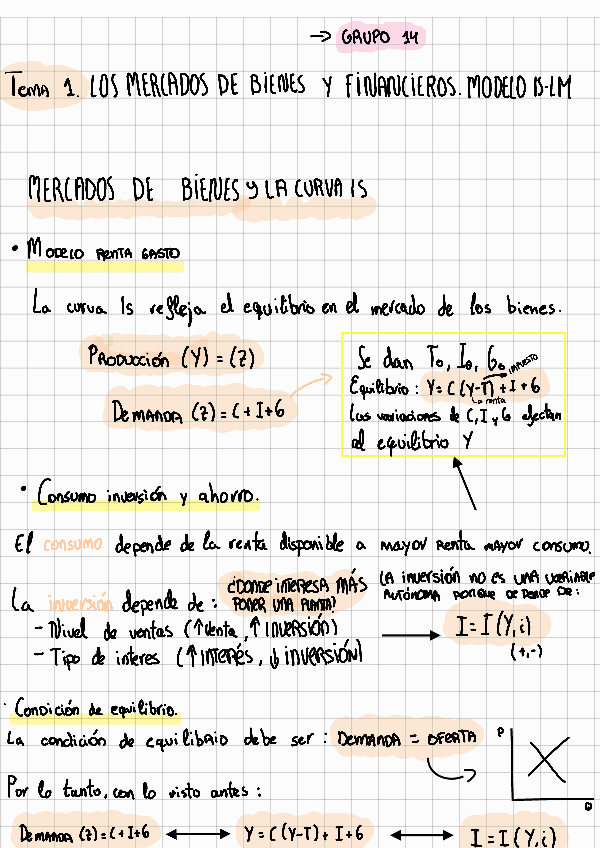 → GRUPO 14
Tema 1. LOS MERCADOS DE BIENES Y FINANCIEROS. MODELO IS-LM
MERCADOS DE BIENES Y LA CURVA IS
• MODELO RENTA GASTO
La curva Is refleja el equilibrio en el mercado de los bienes.
PRODUCCIÓN (Y) = (Z)
DEMANDA (Z) = C + I + G
Se dan T₀, I₀, G₀
IMPUESTO
Equilibrio : Y = C (Y-T) + I + G
↳ renta
Las variaciones de C, I y G afectan
al equilibrio Y
• Consumo inversión y ahorro.
El consumo depende de la renta disponible a mayor renta mayor consumo.
La inversión depende de :
¿DONDE INTERESA MÁS
PONER UNA PLANTA?
LA INVERSIÓN NO ES UNA VARIABLE
AUTÓNOMA PORQUE DEPENDE DE :
- Nivel de ventas (↑ Venta, ↑ INVERSIÓN)
- Tipo de interes (↑ INTERÉS, ↓ INVERSIÓN)
I = I (Y, i)
(+, -)
· Condición de equilibrio.
La condición de equilibrio debe ser : DEMANDA = OFERTA
P
Q
Por lo tanto, con lo visto antes :
DEMANDA (Z) = C + I + G ↔ Y = C (Y-T) + I + G ↔ I = I (Y, i)